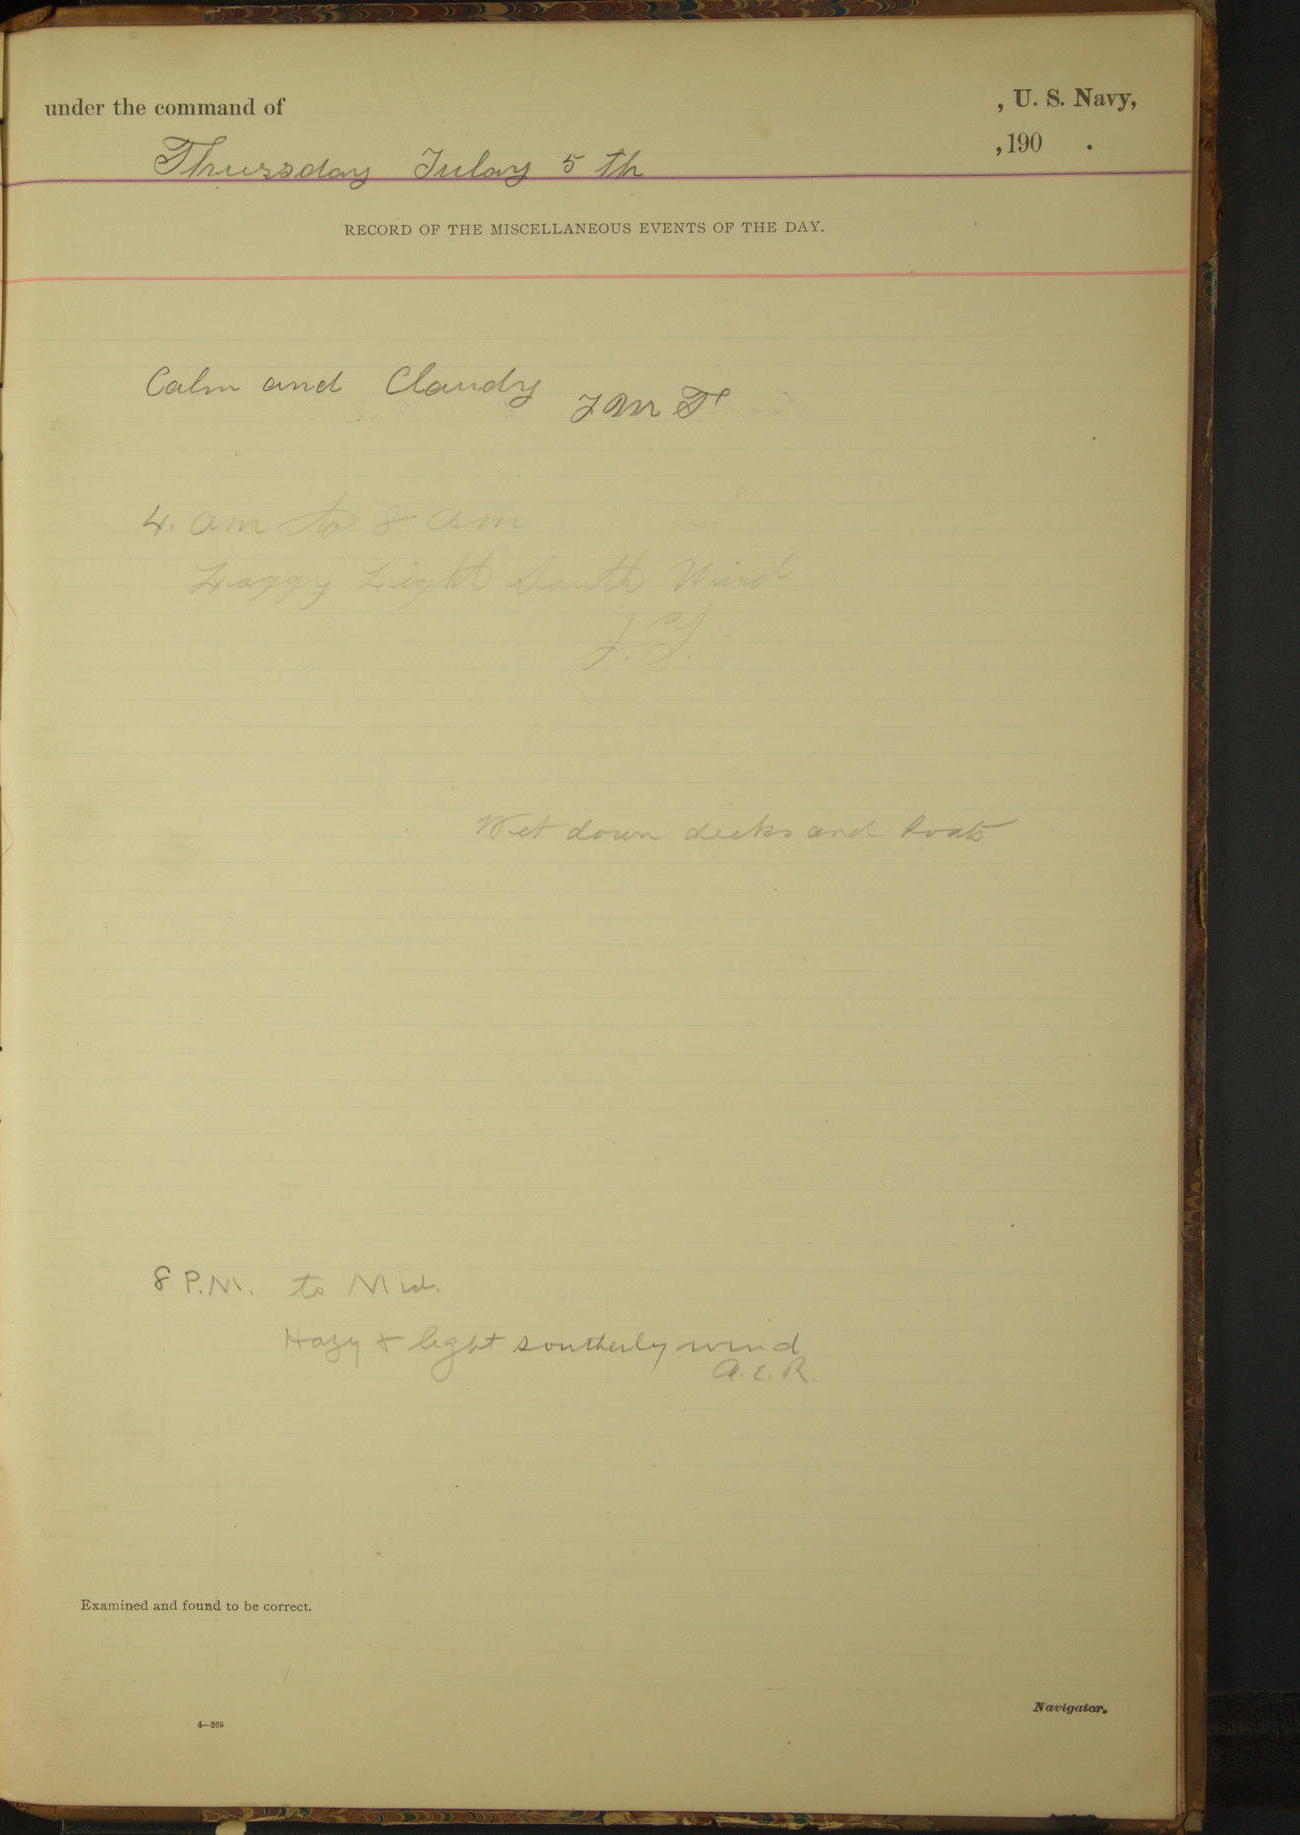 under the command of , U. S. Navy,
Thursday Julay 5 th ,190 .
RECORD OF THE MISCELLANEOUS EVENTS OF THE DAY.
Calm and Claudy
J M T
4. am to 8 am
Foggy Light South Wind
J. Y.
Wet down decks and boats
8 P.M. to Mid.
Hazy & light southerly wind
A. E. R.
Examined and found to be correct.
Navigator.
4—265